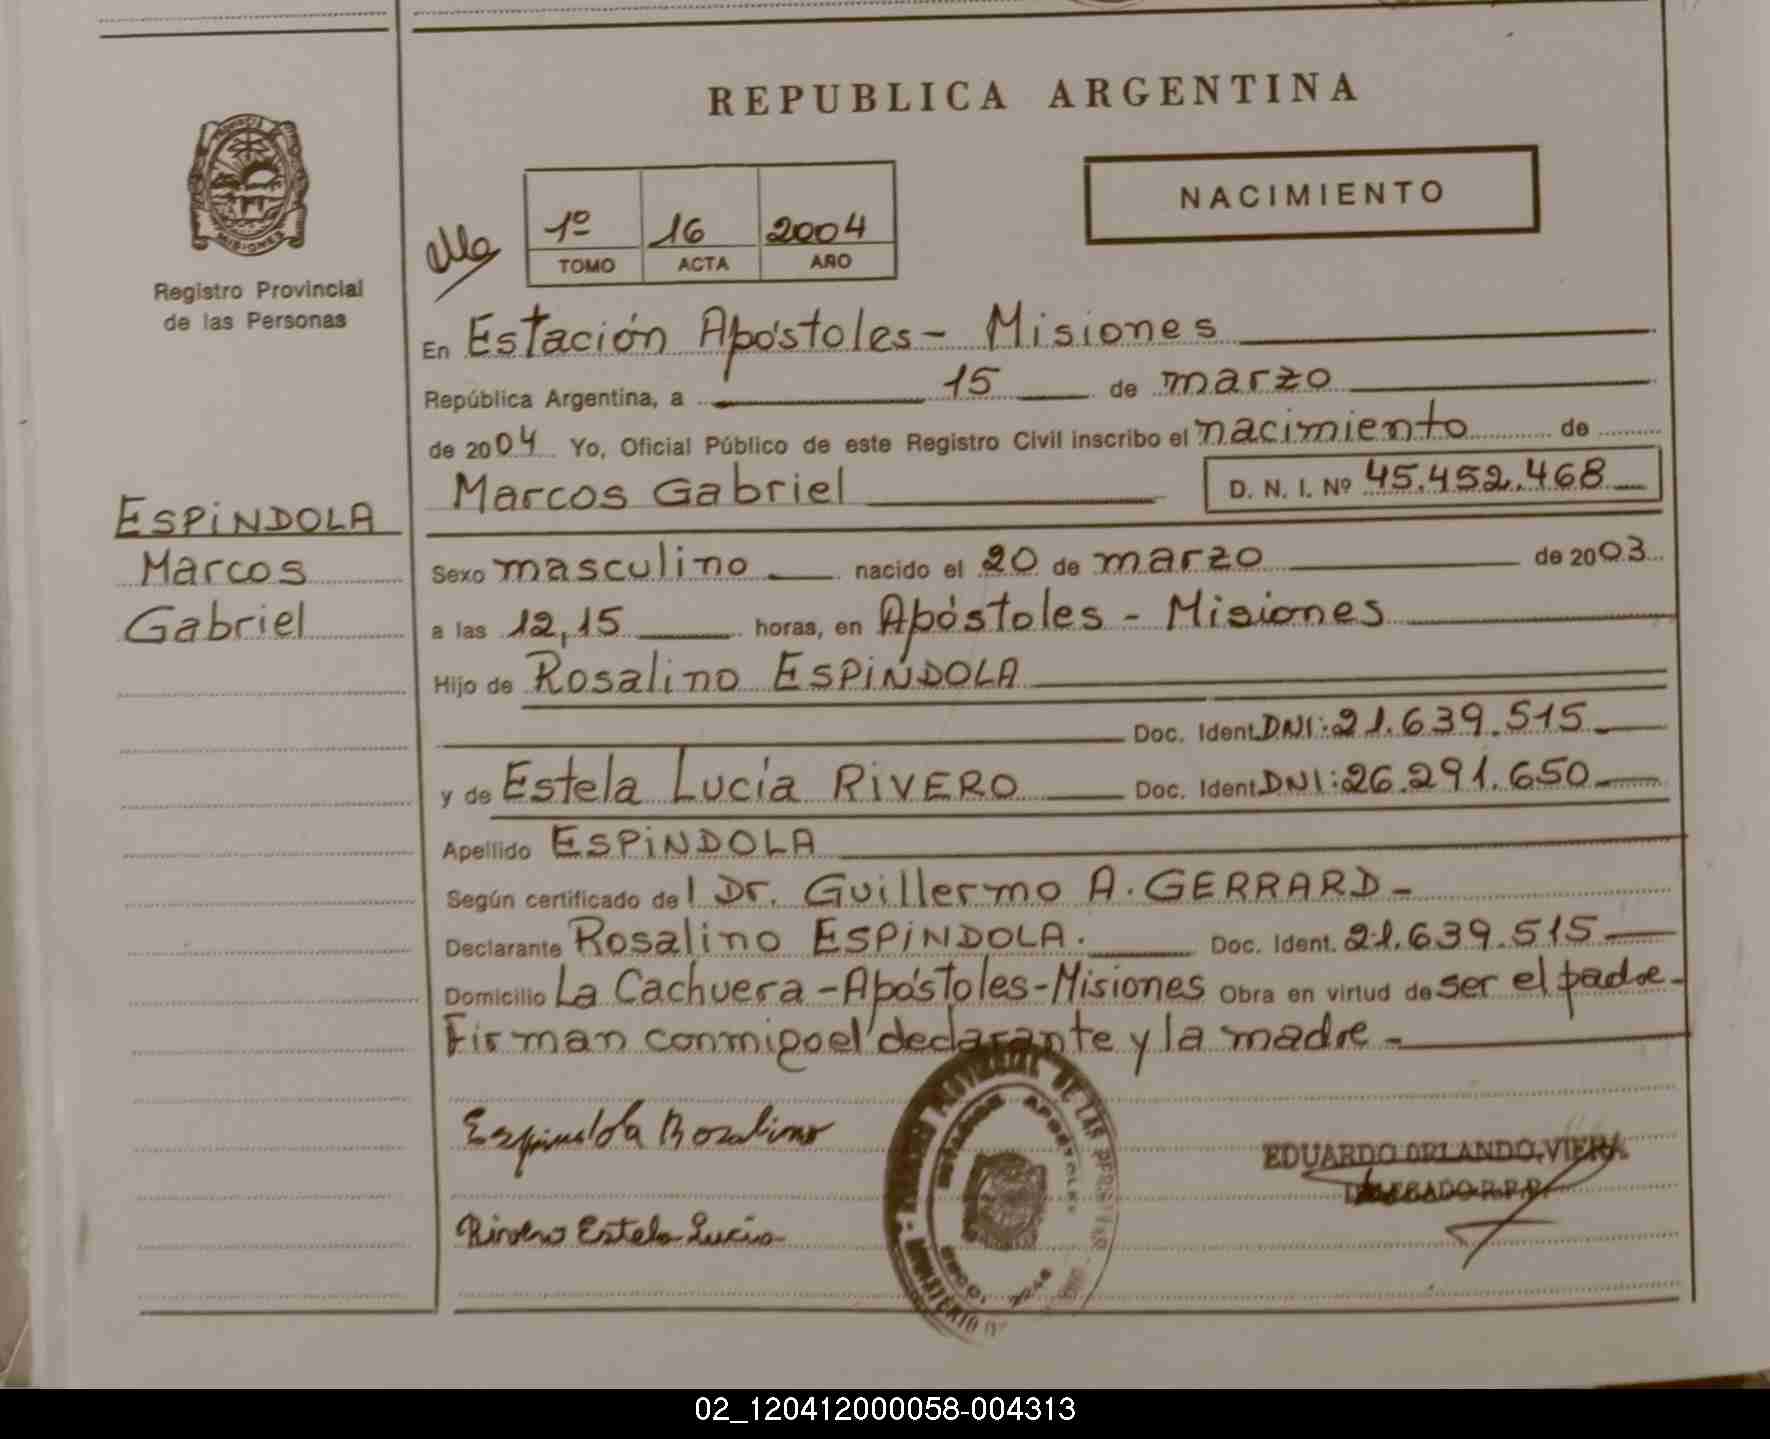 REPUBLICA ARGENTINA
NACIMIENTO
1º 16 2004
TOMO ACTA AÑO
PROVINCIA
MISIONES
Registro Provincial
de las Personas
ESPINDOLA
Marcos
Gabriel
En Estación Apóstoles - Misiones
República Argentina, a 15 de marzo
de 2004 Yo, Oficial Público de este Registro Civil inscribo el nacimiento de
Marcos Gabriel D. N. I. Nº 45.452.468
Sexo masculino nacido el 20 de marzo de 2003
a las 12,15 horas, en Apóstoles - Misiones
Hijo de Rosalino ESPINDOLA
Doc. Ident. DNI: 21.639.515
y de Estela Lucía RIVERO Doc. Ident. DNI: 26.291.650
Apellido ESPINDOLA
Según certificado del Dr. Guillermo A. GERRARD -
Declarante Rosalino ESPINDOLA. Doc. Ident. 21.639.515
Domicilio La Cachuera - Apóstoles - Misiones Obra en virtud de ser el padre -
Firman conmigo el declarante y la madre -
Espindola Rosalino
Rivero Estela Lucia
PROVINCIAL DE LAS PERSONAS
MINISTERIO
EDUARDO ORLANDO VIERA
DELEGADO R.P.P.
02_120412000058-004313